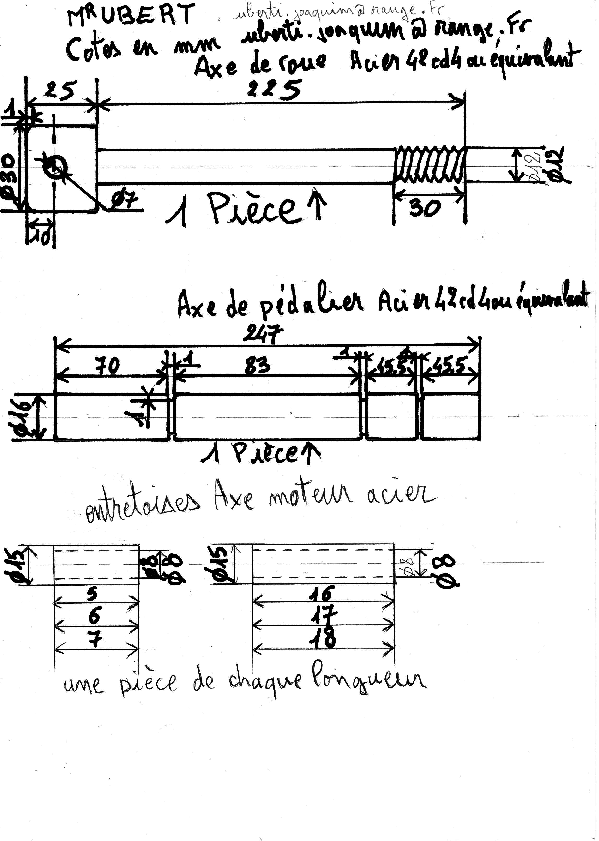 Mr UBERT uberti.joaquim@range.Fr
Cotes en mm uberti.joaquim@range.Fr
Axe de roue Acier 42cd4 ou équivalant
25 225
1
Ø30 Ø7 Ø12 Ø12
1 Pièce↑ 30
10
Axe de pédalier Acier 42cd4 ou équivalant
247
70 1 83 1 45.5 1 45.5
Ø16 1
1 Pièce↑
entretoises Axe moteur acier
Ø15 Ø8 Ø8 Ø15 Ø8 Ø8
5 16
6 17
7 18
une pièce de chaque longueur